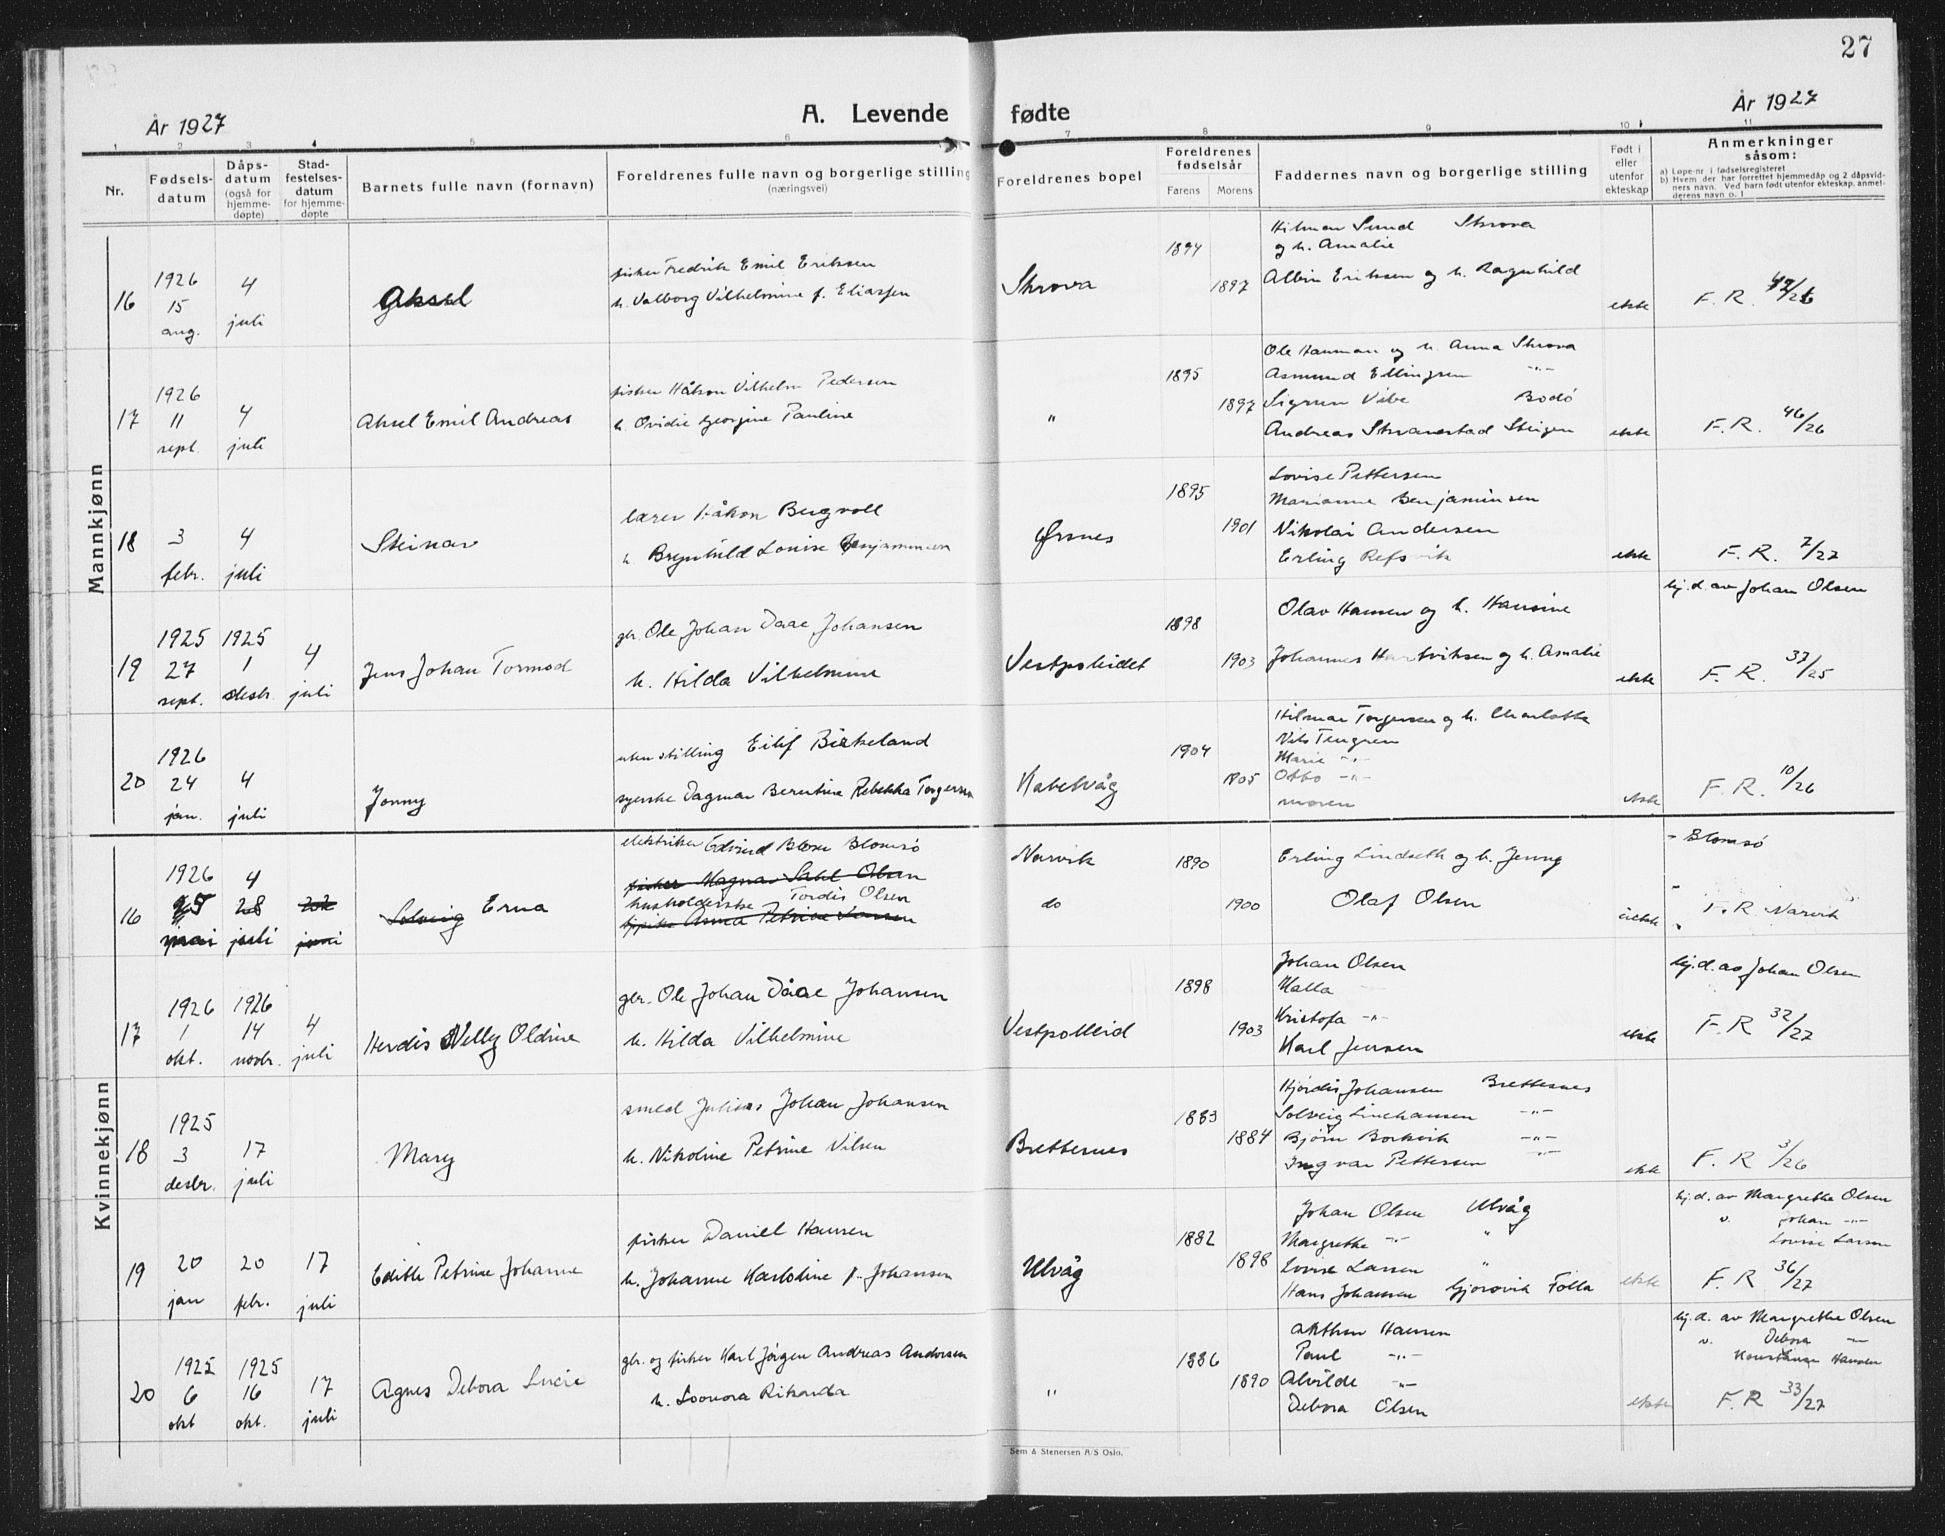 27
År 1927 A. Levende fødte År 1927
1 2 3 4 5 6 7 8 9 10 11
Nr. Fødsels-datum Dåps-datum (også for hjemme-døpte) Stad-festelses-datum for hjemme-døpte Barnets fulle navn (fornavn) Foreldrenes fulle navn og borgerlige stilling (næringsvei) Foreldrenes bopel Foreldrenes fødselsår Farens Morens Faddernes navn og borgerlige stilling Født i eller utenfor ekteskap Anmerkninger såsom:
a) Løpe-nr i fødselsregisteret
b) Hvem der har forrettet hjemmedåp og 2 dåpsvidners navn. Ved barn født utenfor ekteskap, anmelderens navn o. l
Mannkjønn
16 1926 15 aug. 4 juli Aksel
fisker Fredrik Emil Eriksen
h. Valborg Vilhelmine f. Eliassen
Skrova 1894 1897
Hilmar Sund Skrova
og h. Amalie
Albin Eriksen og h. Ragnhild
ekte F. R.
17 1926 11 sept. 4 juli Aksel Emil Andreas
fisker Håkon Vilhelm Pedersen
h. Ovidie Georgine Pauline
" 1895 1897
Ole Hanman og h. Anna Skrova
Asmund Ellingsen -"-
Sigrun Vibe Bodø
Andreas Skvanestad Steigen
ekte F. R. 46/26
18 3 febr. 4 juli Steinar
lærer Håkon Bergvoll
h. Brynhild Louise Benjaminsen
Ørsnes 1895 1901
Lovise Pettersen
Marianne Benjaminsen
Nikolai Andersen
Erling Refsvik
ekte F. R. 7/27
19 1925 27 sept. 1925 1 desbr. 4 juli Jens Johan Tormod
gbr. Ole Johan Daae Johansen
h. Hilda Vilhelmine
Vestpolleidet 1898 1903
Olav Hansen og h. Hansine
Johannes Hartviksen og h. Amalie
ekte hj. d. av Johan Olsen
F. R. 37/25
20 1926 24 jan. 4 juli Jonny
uten stilling Eilif Birkeland
syerske Dagmar Berntine Rebekka Torgersen
Kabelvåg 1904 1905
Hilmar Torgersen og h. Charlotte
Nils Tengren
Marie -"-
Otto -"-
moren
ekte F. R. 10/26
Kvinnekjønn
16 1926 mai 4 28 juli juni Solveig Erna
elektriker Edvind Blom Blomsø
fisker Magnar Olsen
husholderske Tordis Olsen
Asma Petrine Larsen
Narvik do 1890 1900
Erling Lindseth og h. Jenny
Olaf Olsen
uekte - Blomsø
F. R. Narvik
17 1926 1 okt. 1926 14 novbr. 4 juli Herdis Nelly Oldine
gbr. Ole Johan Daae Johansen
h. Hilda Vilhelmine
Vestpolleid 1898 1903
Johan Olsen
Kalla
Kristofa -"-
Karl Jensen
ekte hj. d. av Johan Olsen
F. R 32/27
18 1925 3 desbr. 17 juli Mary
smed Julius Johan Johansen
h. Nikoline Petrine Nilsen
Brettesnes 1883 1884
Hjørdis Johansen Brettesnes
Solveig Linehansen -"-
Bjørn Borkvik -"-
Ingvar Pettersen -"-
ekte F. R 3/26
19 20 jan 20 febr. 17 juli Edith Petrine Johanne
fisker Daniel Hansen
h. Johanne Karloline f. Johansen
Ulvåg 1882 1898
Johan Olsen Ulvåg
Margrethe -"- "
Lovise Larsen "
Hans Johansen Gjorøvik Folla
ekte hj. d. av Margrethe Olsen
v. Johan -"-
Lovise Larsen
F. R 36/27
20 1925 6 okt 1925 16 okt. 17 juli Agnes Debora Lucie
gbr. og fisker Karl Jørgen Andreas Andersen
h. Leonora Rikarda
" 1886 1890
Arthur Hansen
Paul -"-
Alvilde -"-
Debora Olsen
ekte hj. d. av Margrethe Olsen
v. Debora -"-
Konstanse Hansen
F. R 33/27
Sem & Stenersen A/S Oslo.